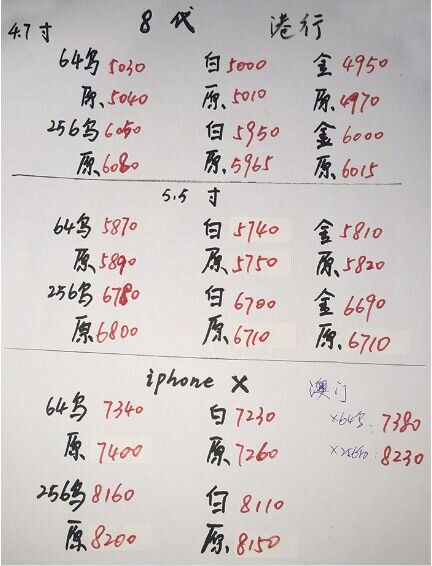 4.7寸 8代 港行
64乌 5030 白 5000 金 4950
原. 5040 原. 5010 原. 4970
256乌 6050 白 5950 金 6000
原. 6080 原. 5965 原. 6015
5.5寸
64乌 5870 白 5740 金 5810
原. 5890 原. 5750 原. 5820
256乌 6780 白 6700 金 6690
原 6800 原. 6710 原. 6710
iphone X 澳门
64乌 7340 白 7230 X64乌: 7380
原 7400 原. 7260 X256: 8230
256乌 8160 白 8110
原 8200 原. 8150